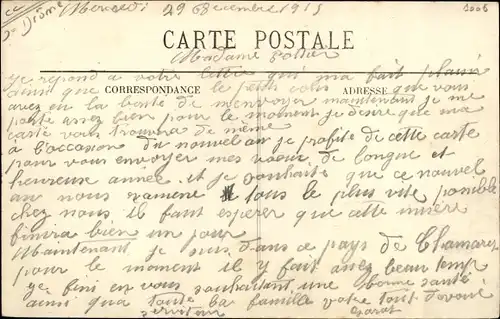 Drome Mercredi 29 Decembre 1915
CARTE POSTALE
Madame
CORRESPONDANCE ADRESSE
Je répond a votre lettre qui ma fait plaisir
ainsi que le petit colis que vous
avez eu la bonté de menvoyer maintenant je me
porte assez bien pour le moment je désire que ma
carte vous trouvera de même
à l'occasion du nouvel an je profite de cette carte
pour vous envoyer mes voeux de longue et
heureuse année et je souhaite que ce nouvel
an nous ramène tous le plus vite possible
chez nous il faut espérer que cette misère
finira bien un jour
Maintenant je suis dans ce pays de Chamaret
pour le moment il y fait assez beau temp
je fini en vous souhaitant une Bonne santé
ainsi que toute la famille votre tout dévoué
serviteur